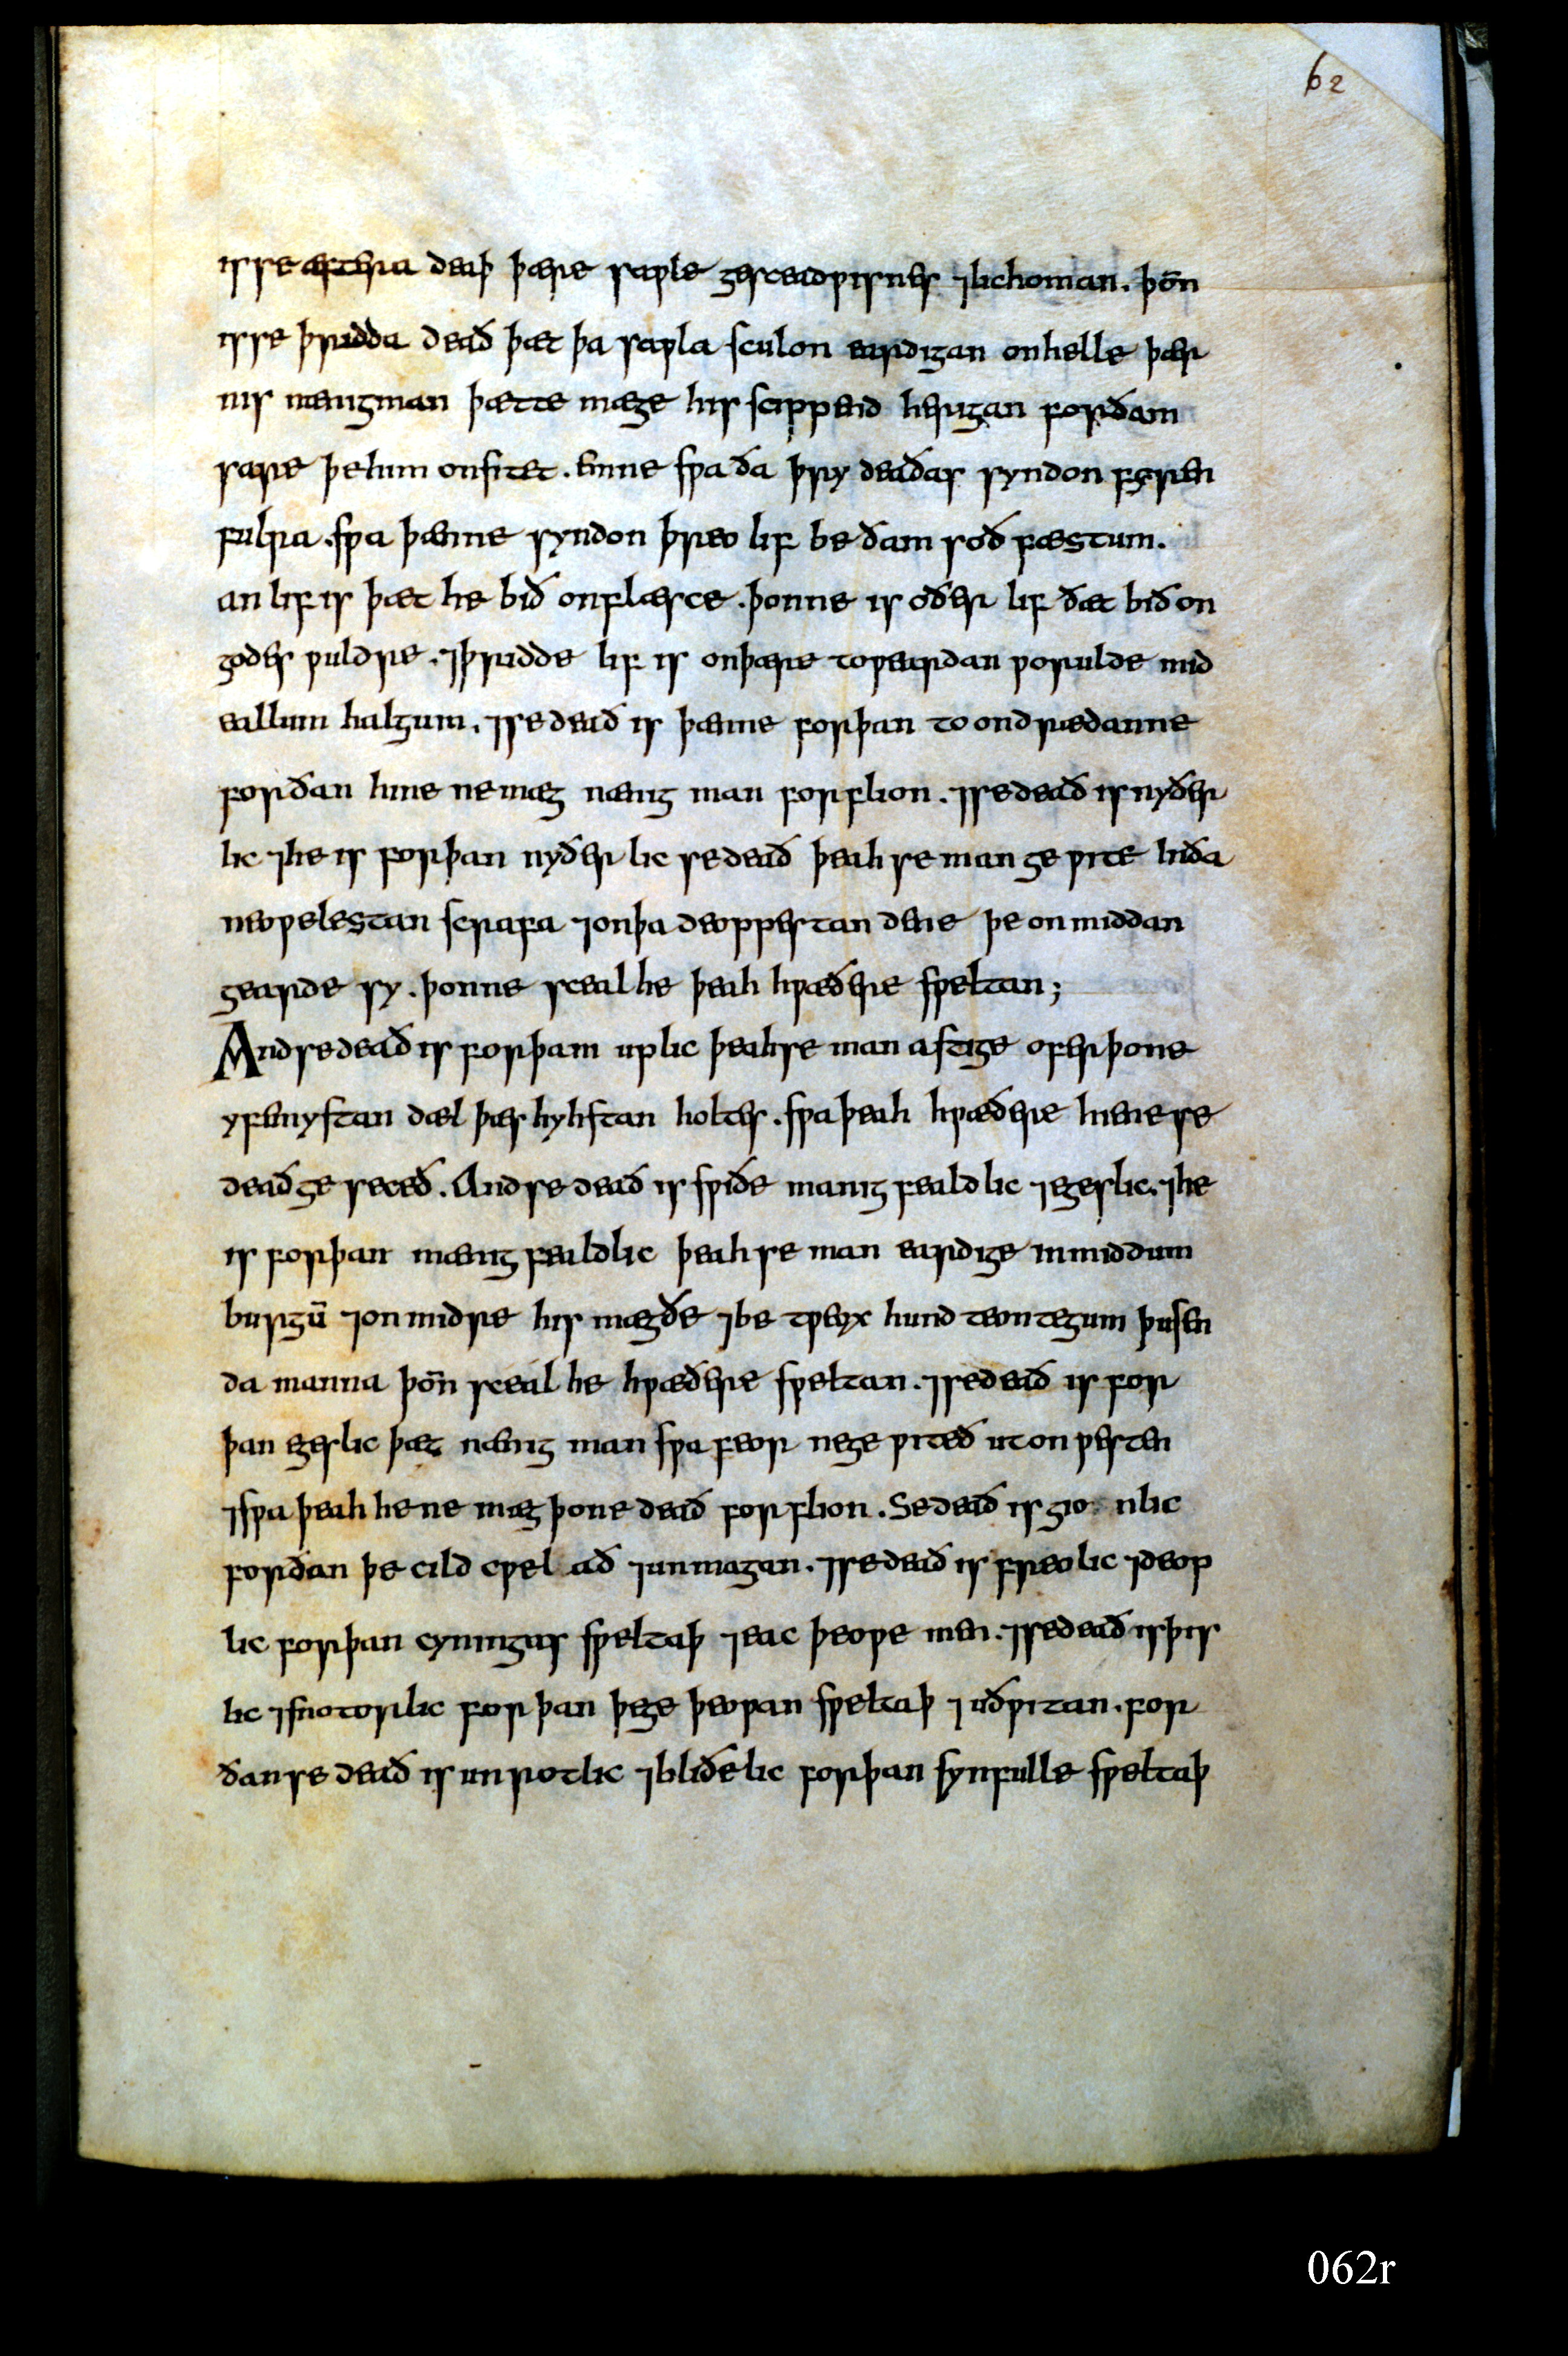 62
is se æftera deaþ þære sawle gesceadwisnes ⁊ lichoman. þōn
is se þridda deað þæt þa sawla sculon eardigan on helle þær
nis nænig man þætte mæge his scippend herigan for ðam
sare þe him on sitet. Ænne swa ða þry deaðas syndon
fulra. swa þænne syndon þreo lif be ðam soðfæstum.
an lif is þæt he bið on flæsce. þonne is oðer lif ðæt bið on
godes wuldre. ⁊ þridde lif is on þære toweardan worulde mid
eallum halgum. ⁊ se deað is þænne for þan to ondrædanne
for ðan hine ne mæg nænig man forflion. ⁊ se deað is nyðer
lic ⁊ he is for þan nyðerlic se deað þeah se man gewite in ða
neowelestan scrafa ⁊ on þa deoppestan dene þe on middan
gearde sy. þonne sceal he þeah hwæðere sweltan;
And se deað is for þam uplic þeah se man astige ofer þone
yfemystan dæl þæs hyhstan holtes. swa þeah hwæðere hiene se
deað geseceð. And se deað is swiðe manigfealdlic ⁊ egeslic. ⁊ he
is for þan mænigfealdlic þeah se man eardige in middum
burgū ⁊ on midre his mægðe ⁊ be tweyx hundteontegum þusen
da manna þōn sceal he hwæðere sweltan. ⁊ se deað is for
þan egeslic þæt nænig man swa feor ne gewiteð ut on westen
⁊ swa þeah he ne mæg þone deað forflion. Se deað is gio nlic
for ðan þe cild cwel að ⁊ unmagan. ⁊ se deað is freolic ⁊ deow
lic for þan cyningas sweltaþ ⁊ eac þeowe men. ⁊ se deað is wis
lic ⁊ snotorlic for þan þege þeowan sweltaþ ⁊ uðwitan. for
ðan se deað is unrotlic ⁊ bliðelic for þan synfulle sweltaþ
062r